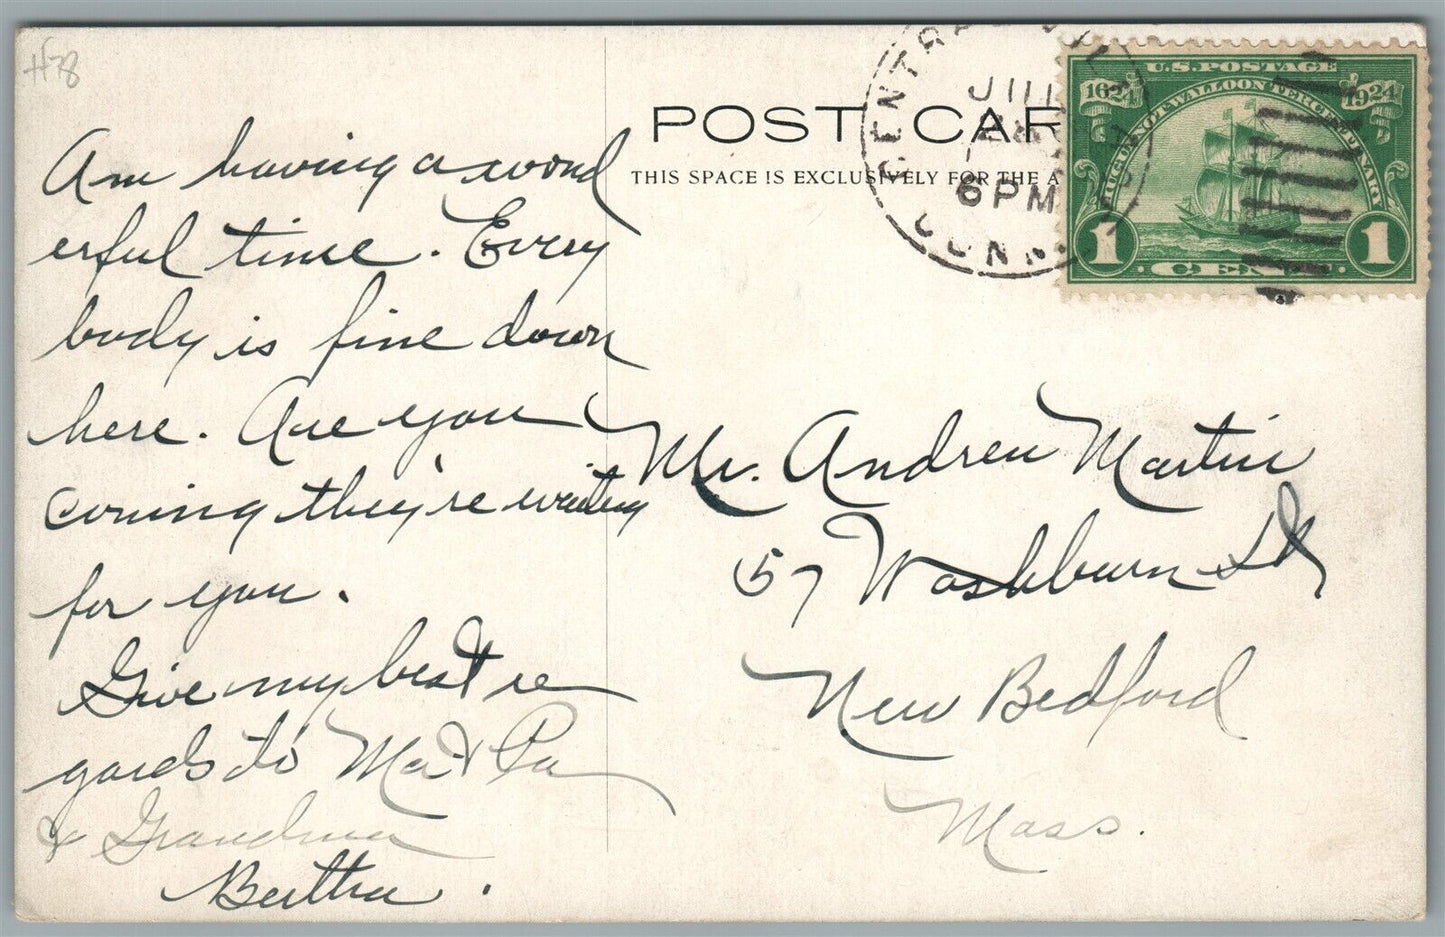 H78
POST CAR
THIS SPACE IS EXCLUSIVELY FOR THE A
CENTRA
JUL
6 PM
CONN.
U.S. POSTAGE
1624 1924
HUGUENOT WALLOON TERCENTENARY
1 CENT 1
Am having a wond
erful time. Every
body is fine down
here. Are you
coming they're waiting
for you.
Give my best re
gards to Ma & Pa
& Grandma
Bertha.
Mr. Andrew Martin
57 Washburn St
New Bedford
Mass.